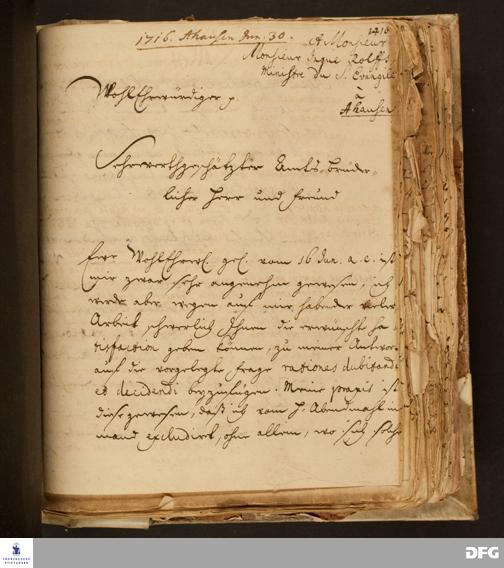 1716. Ahausen Jun. 30.
1416
A Monsieur
Monsieur Rolffs
Ministre du S. Evangile
à
Ahausen
WohlEhrwürdiger
Sehrwerthgeschätzter Amts-brüder-
licher Herr und Freund
Ewr. WohlEhrw. vom 16 Jun. a. c. ist
mir zwar sehr angenehm gewesen, ich
werde aber wegen auf mir habender vieler
Arbeit schwerlich Ihnen die erwünschte sa-
tisfaction geben können, zu meiner Antwort
auf die vorgelegte frage rationes dubitandi
et decidendi beyzufügen. Meine praxis ist
diese gewesen, daß ich vom H. Abendmahl nie-
mand excludiret, ohne allein, wo sich solche
FRANCKESCHE
STIFTUNGEN
DFG